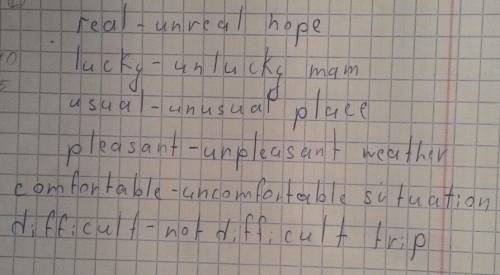 real-unreal hope
lucky-unlucky mam
usual-unusual place
pleasant-unpleasant weather
comfortable-uncomfortable situation
difficult-not difficult trip